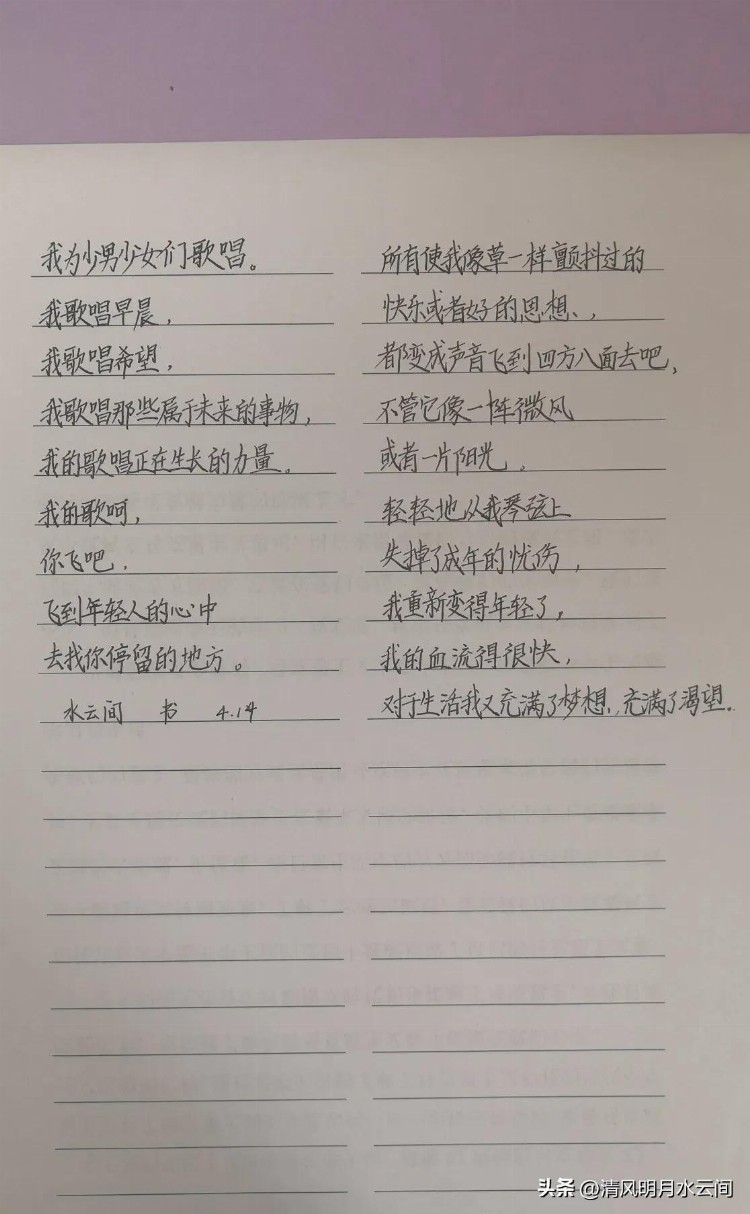 我为少男少女们歌唱。
我歌唱早晨，
我歌唱希望，
我歌唱那些属于未来的事物，
我的歌唱正在生长的力量。
我的歌呵，
你飞吧．
飞到年轻人的心中
去找你停留的地方。
水云间 书 4.14
所有使我像草一样颤抖过的
快乐或者好的思想、，
都变成声音飞到四方八面去吧，
不管它像一阵微风
或者一片阳光，
轻轻地从我琴弦上
失掉了成年的忧伤，
我重新变得年轻了，
我的血流得很快，
对于生活我又充满了梦想，充满了渴望．
头条 @清风明月水云间